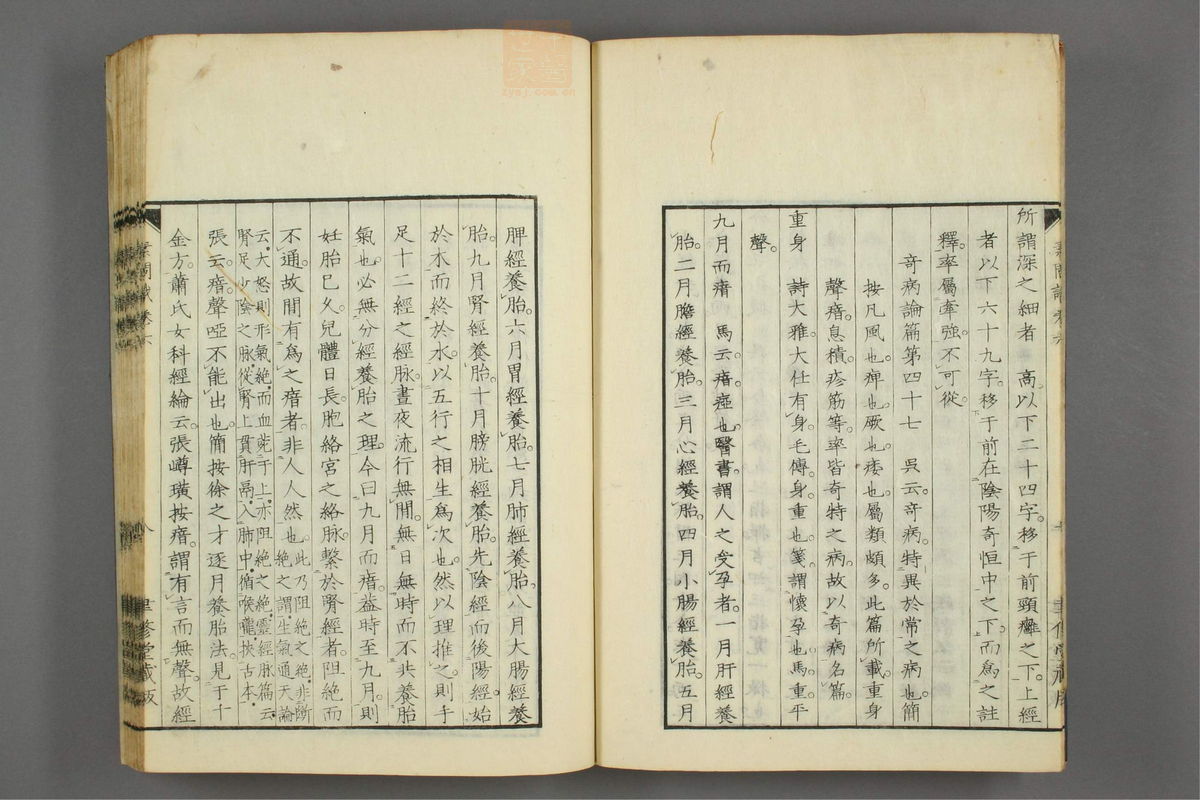 所謂深之細者　高以下二十四字移于前頸癰之下上經
者以下六十九字移于前在陰陽奇恒中之下而爲之註
釋率屬牽强不可從
奇病論篇第四十七　吳云奇病特異於常之病也簡
按凡風也痺也厥也痿也屬類頗多此篇所載重身
聲瘖息積疹筋等率皆奇特之病故以奇病名篇
重身　詩大雅大任有身毛傳身重也箋謂懷孕也馬重平
聲
九月而瘖　馬云瘖瘂也醫書謂人之受孕者一月肝經養
胎二月膽經養胎三月心經養胎四月小腸經養胎五月
脾經養胎六月胃經養胎七月肺經養胎八月大腸經養
胎九月腎經養胎十月膀胱經養胎先陰經而後陽經始
於木而終於水以五行之相生爲次也然以理推之則手
足十二經之經脉晝夜流行無間無日無時而不共養胎
氣也必無分經養胎之理今曰九月而瘖蓋時至九月則
妊胎已久兒體日長胞絡宮之絡脉繫於腎經者阻絶而
不通故間有爲之瘖者非人人然也此乃阻絶之絶非斷
絶之謂生氣通天論
云大怒則形氣絶而血菀于上亦阻絶之絶靈經脉篇云
腎足少陰之脉從腎上貫肝鬲入肺中循喉嚨挾舌本
張云瘖聲啞不能出也簡按徐之才逐月養胎法見于千
金方蕭氏女科經綸云張嶟璜按瘖謂有言而無聲故經
素問識卷六
八
聿修堂藏版
zysj.com.cn